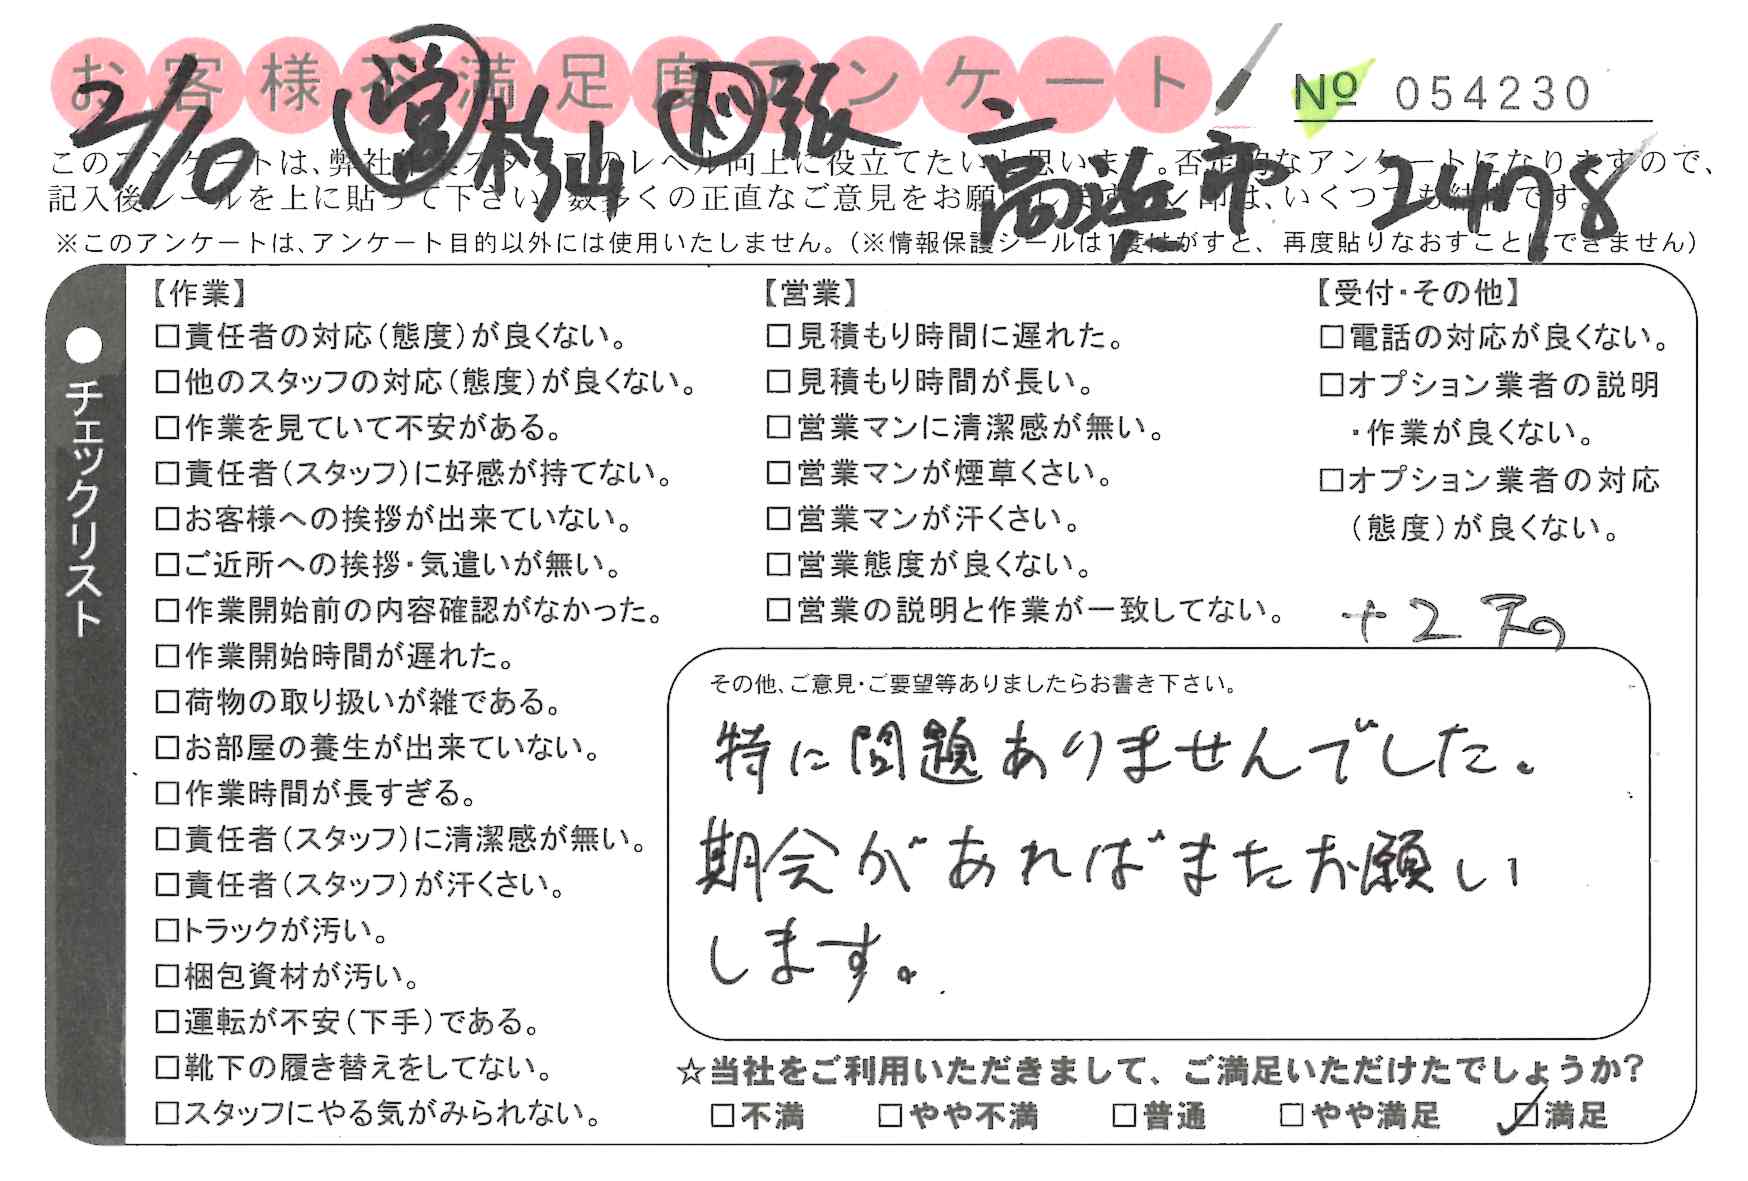 お客様不満足度アンケート
№ 054230
2/10 営 杉山 ド 張 高浜市 2478
このアンケートは、弊社作業スタッフのレベル向上に役立てたいと思います。否定的なアンケートになりますので、
記入後シールを上に貼って下さい。数多くの正直なご意見をお願いします。レ印は、いくつでも結構です。
※このアンケートは、アンケート目的以外には使用いたしません。（※情報保護シールは1度はがすと、再度貼りなおすことはできません）
●チェックリスト
【作業】
□責任者の対応（態度）が良くない。
□他のスタッフの対応（態度）が良くない。
□作業を見ていて不安がある。
□責任者（スタッフ）に好感が持てない。
□お客様への挨拶が出来ていない。
□ご近所への挨拶・気遣いが無い。
□作業開始前の内容確認がなかった。
□作業開始時間が遅れた。
□荷物の取り扱いが雑である。
□お部屋の養生が出来ていない。
□作業時間が長すぎる。
□責任者（スタッフ）に清潔感が無い。
□責任者（スタッフ）が汗くさい。
□トラックが汚い。
□梱包資材が汚い。
□運転が不安（下手）である。
□靴下の履き替えをしてない。
□スタッフにやる気がみられない。
【営業】
□見積もり時間に遅れた。
□見積もり時間が長い。
□営業マンに清潔感が無い。
□営業マンが煙草くさい。
□営業マンが汗くさい。
□営業態度が良くない。
□営業の説明と作業が一致してない。
【受付・その他】
□電話の対応が良くない。
□オプション業者の説明
・作業が良くない。
□オプション業者の対応
（態度）が良くない。
+2
その他、ご意見・ご要望等ありましたらお書き下さい。
特に問題ありませんでした。
期会があればまたお願い
します。
☆当社をご利用いただきまして、ご満足いただけたでしょうか?
□不満 □やや不満 □普通 □やや満足 ☑満足